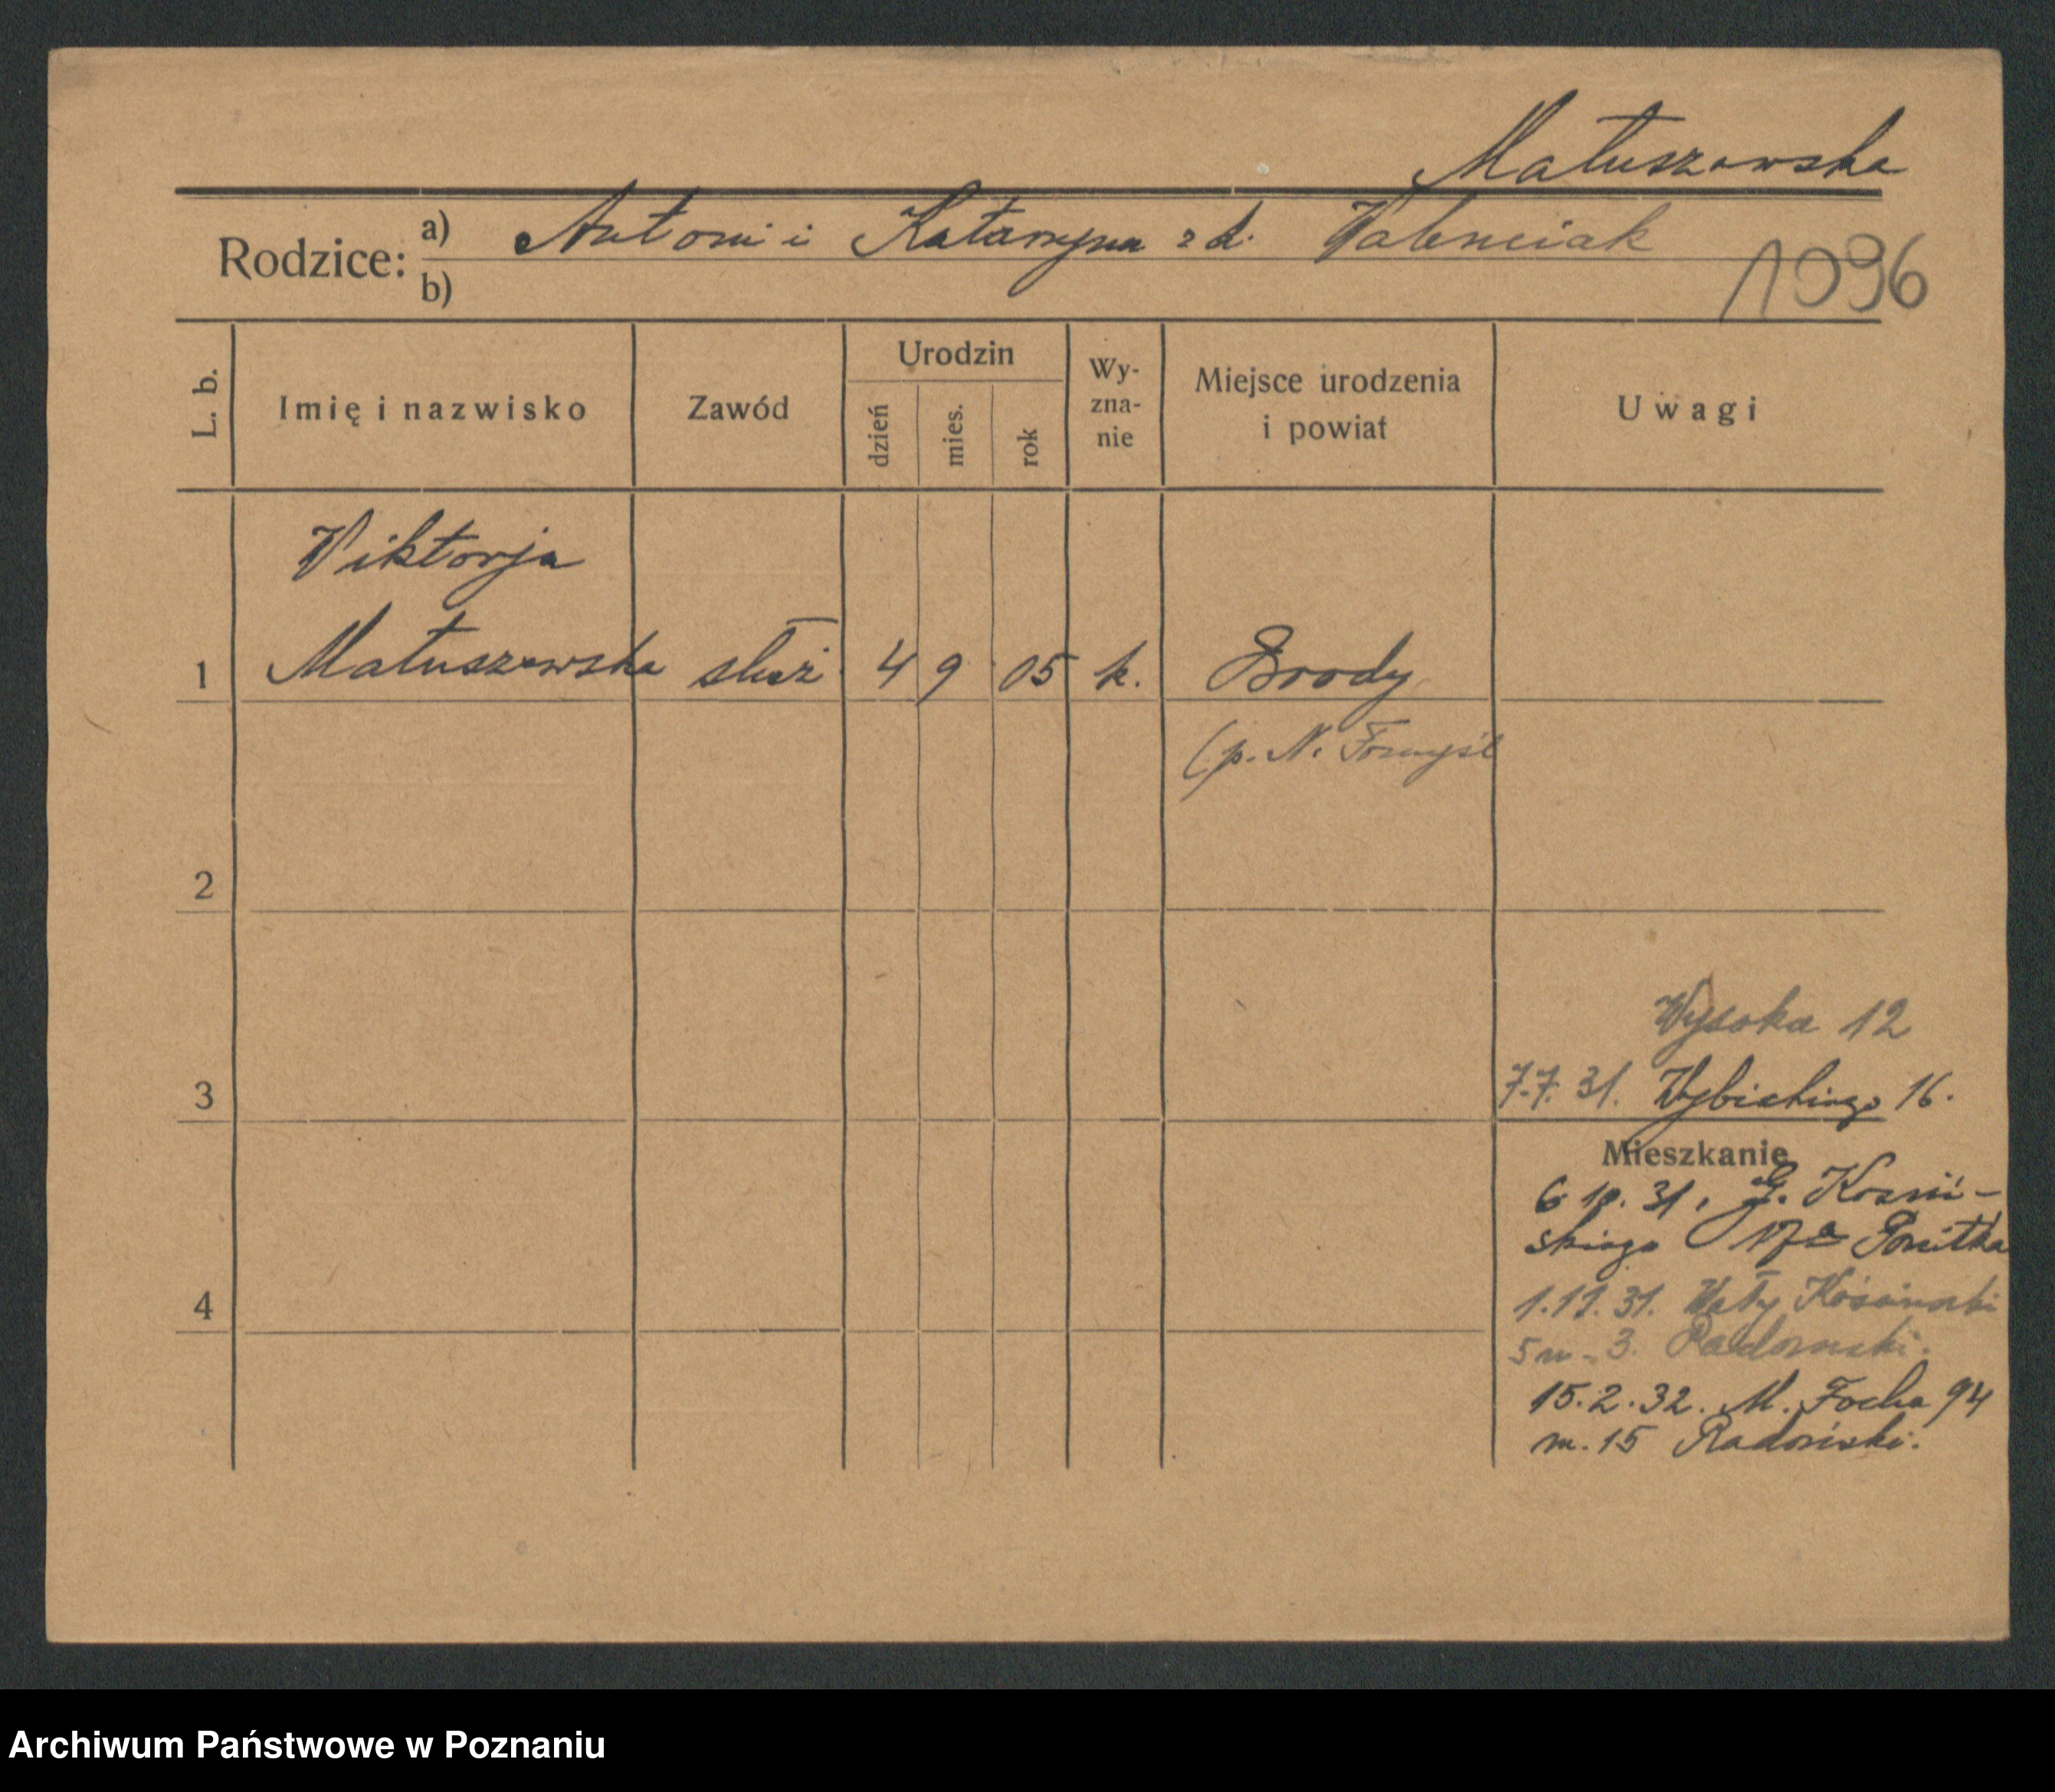 Matuszewska
Rodzice: a) Antoni i Katarzyna z d. Walenciak
b)
1096
L. b. Imię i nazwisko Zawód Urodzin dzień mies. rok Wy-zna-nie Miejsce urodzenia i powiat Uwagi
Wiktorja
1 Matuszewska służ. 4 9 05 k. Brody
(p. N. Tomyśl
2
Wysoka 12
3 7.7. 31. Wybickiego 16.
Mieszkanie
6 10. 31, G.
skiego 17a
4 1.11.31. Wały
5 m. 3. Radomski.
15.2.32. M. Focha 94
m. 15 Radoński.
Archiwum Państwowe w Poznaniu